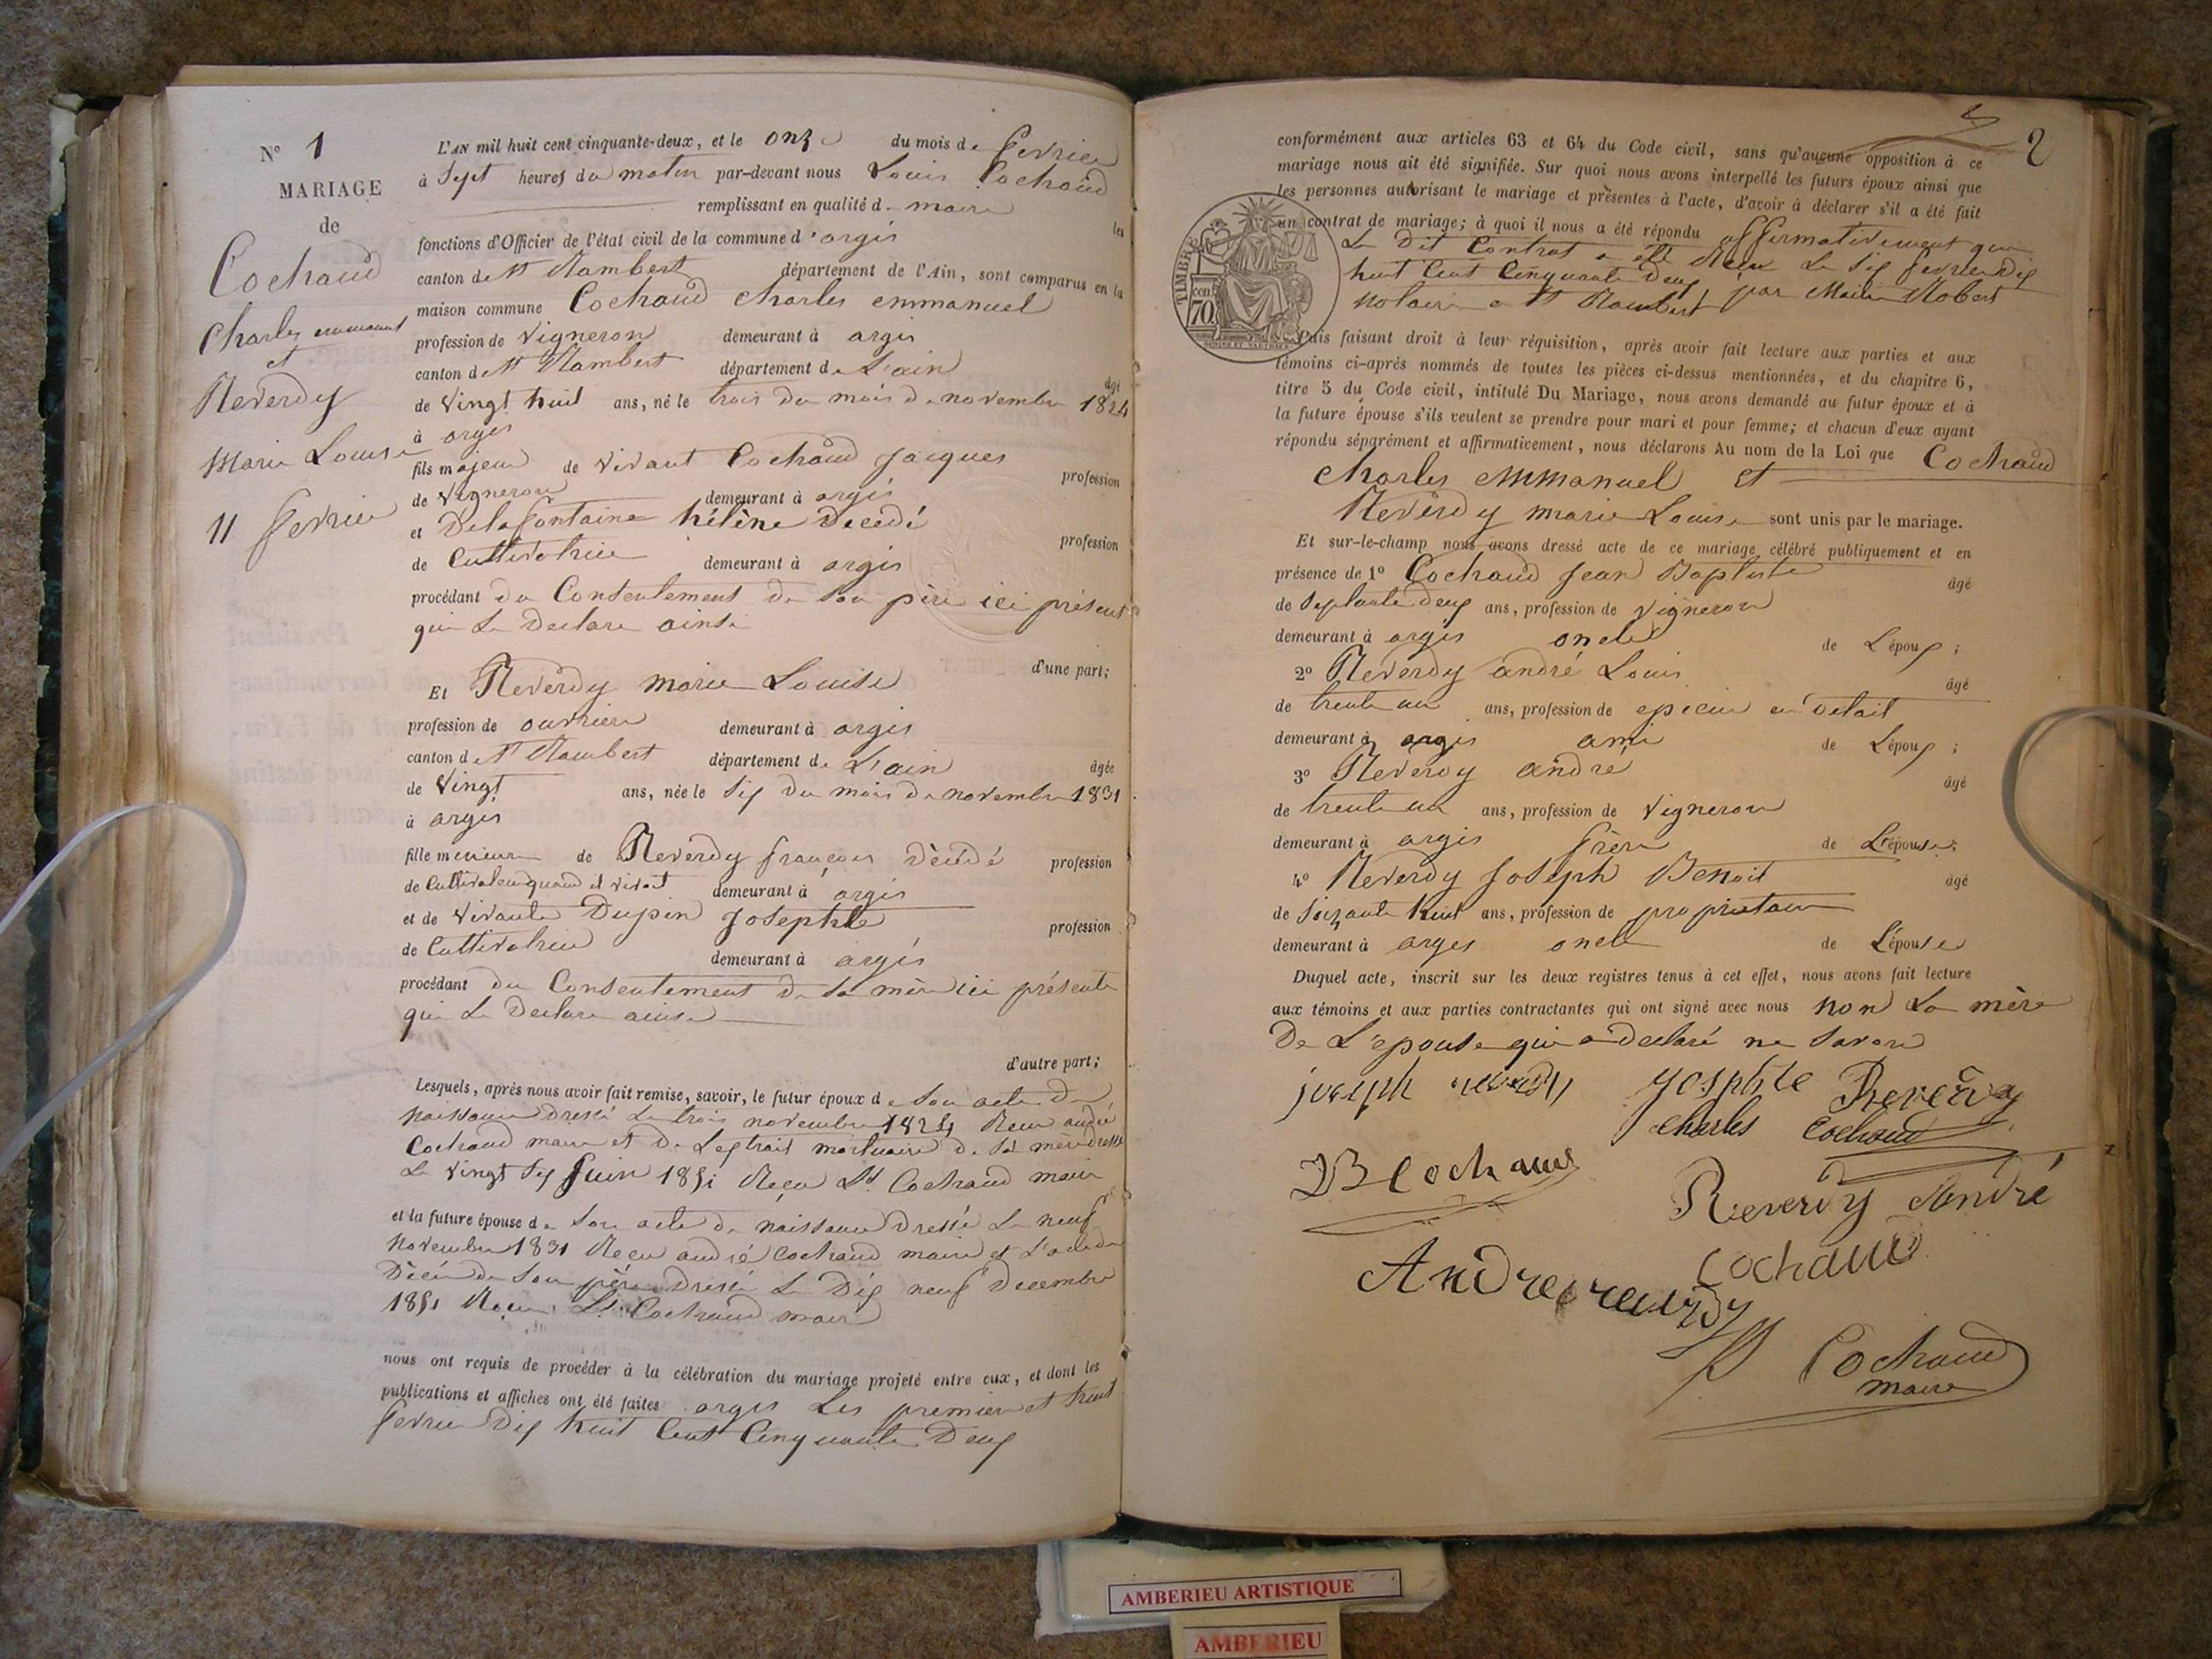 N° 1
MARIAGE
de
Cochaud
Charles emmanuel
et
Reverdy
Marie Louise
11 fevrier
L'AN mil huit cent cinquante-deux, et le onze du mois de fevrier
à Sept heures du matin par-devant nous Louis Cochaud
remplissant en qualité de maire les
fonctions d'Officier de l'état civil de la commune d'argis
canton de St Rambert département de l'Ain, sont comparus en la
maison commune Cochaud charles emmanuel
profession de Vigneron demeurant à argis
canton de St Rambert département de L'ain âgé
de Vingt huit ans, né le trois du mois de novembre 1824
à argis
fils majeur de vivant Cochaud Jacques profession
de Vigneron demeurant à argis
et Delafontaine hélène decedé profession
de Cultivatrice demeurant à argis
procédant du Consentement de son père ici présent
qui Le Declare ainsi
d'une part;
Et Reverdy marie Louise
profession de ouvriere demeurant à argis
canton de St Rambert département de L'ain âgée
de Vingt ans, née le Six du mois de novembre 1831
à argis
fille mineure de Reverdy françois Décédé profession
de Cultivateur quand il vivait demeurant à argis
et de vivante Dupin Josephte profession
de Cultivatrice demeurant à argis
procédant du Consentement de sa mère ici présente
qui Le Declare ainsi
d'autre part;
Lesquels, après nous avoir fait remise, savoir, le futur époux de Son acte de
naissance dressé Le trois novembre 1824 Recu andré
Cochaud maire et de Lextrait mortuaire de Sa mère dressé
Le vingt Six Juin 1851 Reçu Ls Cochaud maire
et la future épouse de Son acte de naissance dressé Le neuf
Novembre 1831 Reçu andré Cochaud maire et L'acte de
Décés de Son père dressé Le Dix neuf Decembre
1851 Reçu Ls Cochaud maire
nous ont requis de procéder à la célébration du mariage projeté entre eux, et dont les
publications et affiches ont été faites argis Les premier et huit
fevrier Dix huit Cent Cinquante Deux
2
conformément aux articles 63 et 64 du Code civil, sans qu'aucune opposition à ce
mariage nous ait été signifiée. Sur quoi nous avons interpellé les futurs époux ainsi que
les personnes autorisant le mariage et présentes à l'acte, d'avoir à déclarer s'il a été fait
un contrat de mariage; à quoi il nous a été répondu affirmativement que
Le Dit Contrat a été Reçu Le Six fevrier Dix
huit Cent Cinquante Deux par Maitre Robert
Notaire a St Rambert
TIMBRE
cen
70
Puis faisant droit à leur réquisition, après avoir fait lecture aux parties et aux
témoins ci-après nommés de toutes les pièces ci-dessus mentionnées, et du chapitre 6,
titre 5 du Code civil, intitulé Du Mariage, nous avons demandé au futur époux et à
la future épouse s'ils veulent se prendre pour mari et pour femme; et chacun d'eux ayant
répondu séparément et affirmativement, nous déclarons Au nom de la Loi que Cochaud
Charles emmanuel et
Reverdy marie Louise sont unis par le mariage.
Et sur-le-champ nous avons dressé acte de ce mariage célébré publiquement et en
présence de 1° Cochaud Jean Baptiste âgé
de Septante Deux ans, profession de Vigneron
demeurant à argis oncle de L'époux;
2° Reverdy andré Louis âgé
de trente un ans, profession de epicier en Detail
demeurant à argis ami de L'époux;
3° Reverdy andré âgé
de trente un ans, profession de Vigneron
demeurant à argis frère de L'épouse;
4° Reverdy Joseph Benoit âgé
de Soizante huit ans, profession de propriétaire
demeurant à arges oncle de L'épouse
Duquel acte, inscrit sur les deux registres tenus à cet effet, nous avons fait lecture
aux témoins et aux parties contractantes qui ont signé avec nous non La mère
De L'épouse qui a declaré ne Savoir
joseph reverdy Josphte Reverdy
Charles Cochaud
JB Cochaud
Reverdy André
Cochaud
Andre reverdy
Cochaud
maire
AMBERIEU ARTISTIQUE
AMBERIEU